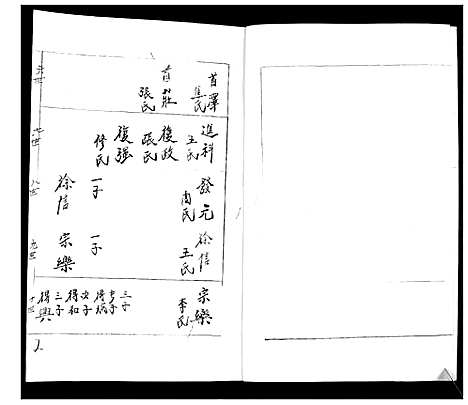 六世
首澤
焦氏
首莊
張氏
七世
進科
王氏
復政
張氏
復强
修氏
八世
發元
尚氏
一子
徐信
九世
徐信
王氏
一子
宗樂
十世
宗樂
李氏
三子
長子
次子
得和
三子
得興